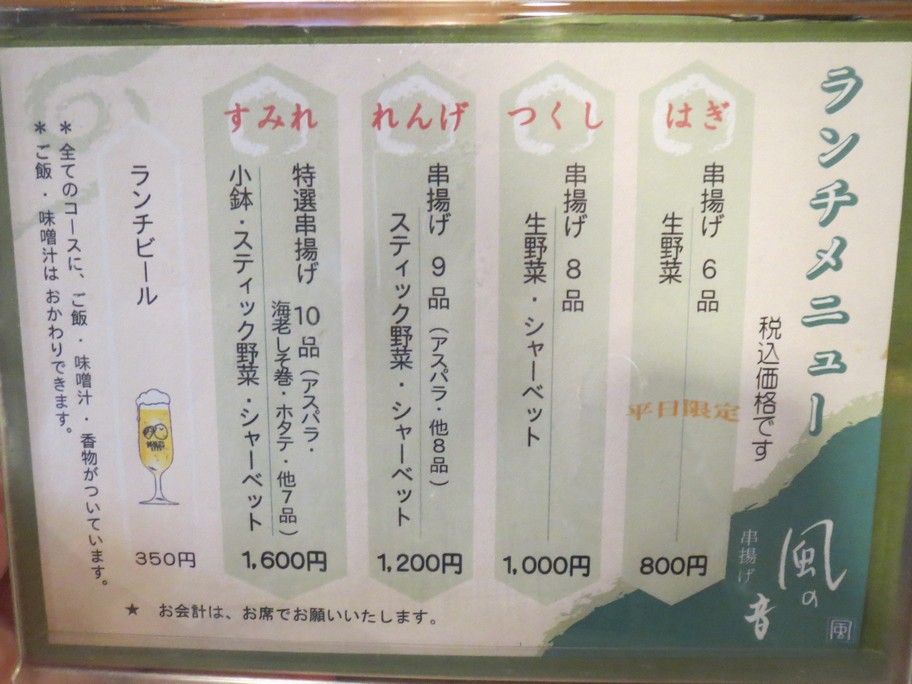 ランチメニュー
税込価格です
はぎ
串揚げ 6品
生野菜
平日限定
800円
つくし
串揚げ 8品
生野菜・シャーベット
1,000円
れんげ
串揚げ 9品(アスパラ・他8品)
スティック野菜・シャーベット
1,200円
すみれ
特選串揚げ 10品(アスパラ・
海老しそ巻・ホタテ・他7品)
小鉢・スティック野菜・シャーベット
1,600円
ランチビール
350円
*全てのコースに、ご飯・味噌汁・香物がついています。
*ご飯・味噌汁は おかわりできます。
★ お会計は、お席でお願いいたします。
串揚げ
風の音
風